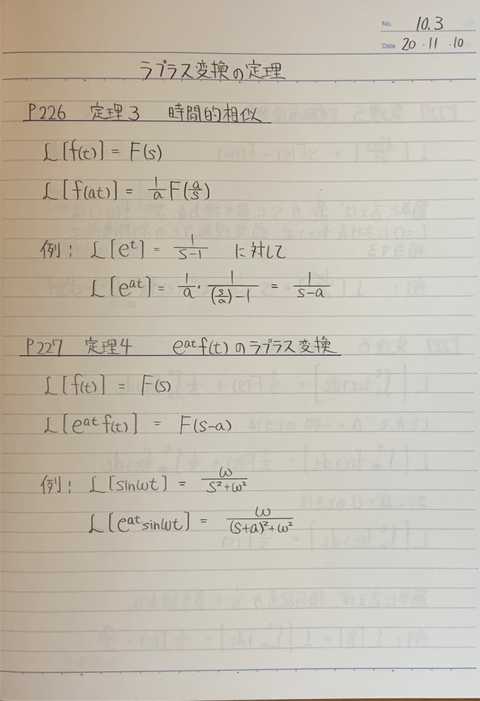 No. 10.3
Date 20・11・10
ラプラス変換の定理
P226 定理3 時間的相似
L[f(t)] = F(s)
L[f(at)] = 1/a F(a/s)
例: L[e^t] = 1/(s-1) に対して
L[e^at] = 1/a・1/((s/a)-1) = 1/(s-a)
P227 定理4 e^at f(t)のラプラス変換
L[f(t)] = F(s)
L[e^at f(t)] = F(s-a)
例: L[sinωt] = ω/(s²+ω²)
L[e^at sinωt] = ω/((s+a)²+ω²)